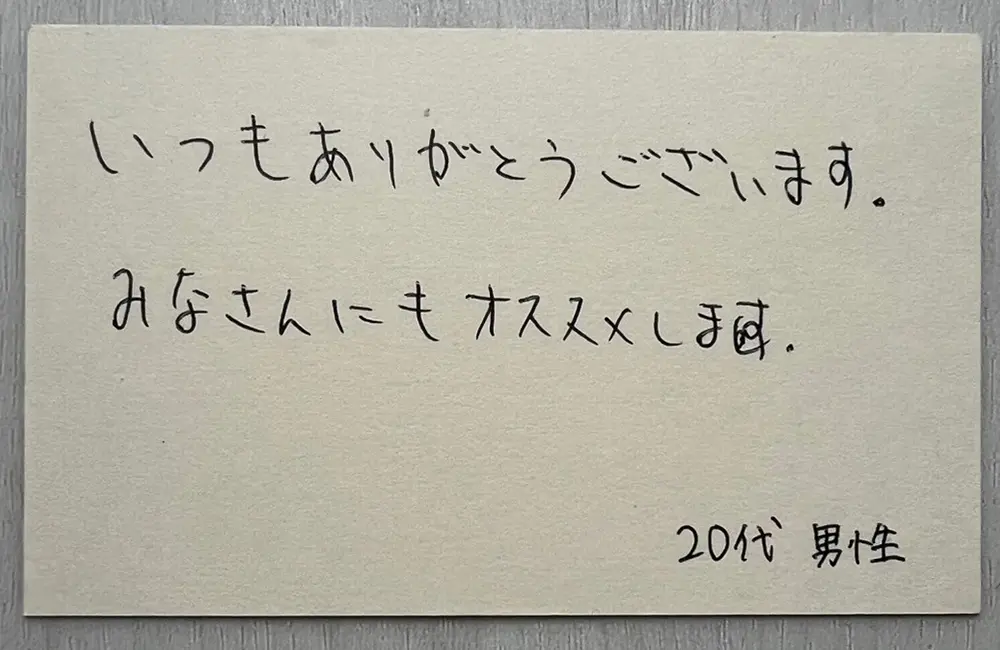 いつもありがとうございます.
みなさんにもオススメします.
20代 男性